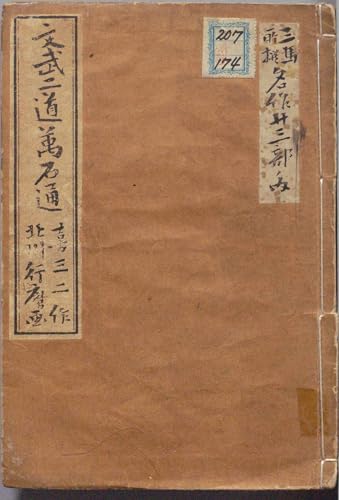 三馬
所撰
名作廿三部ノ内
207
174
文武二道萬石通
喜三二作
北川行麿画